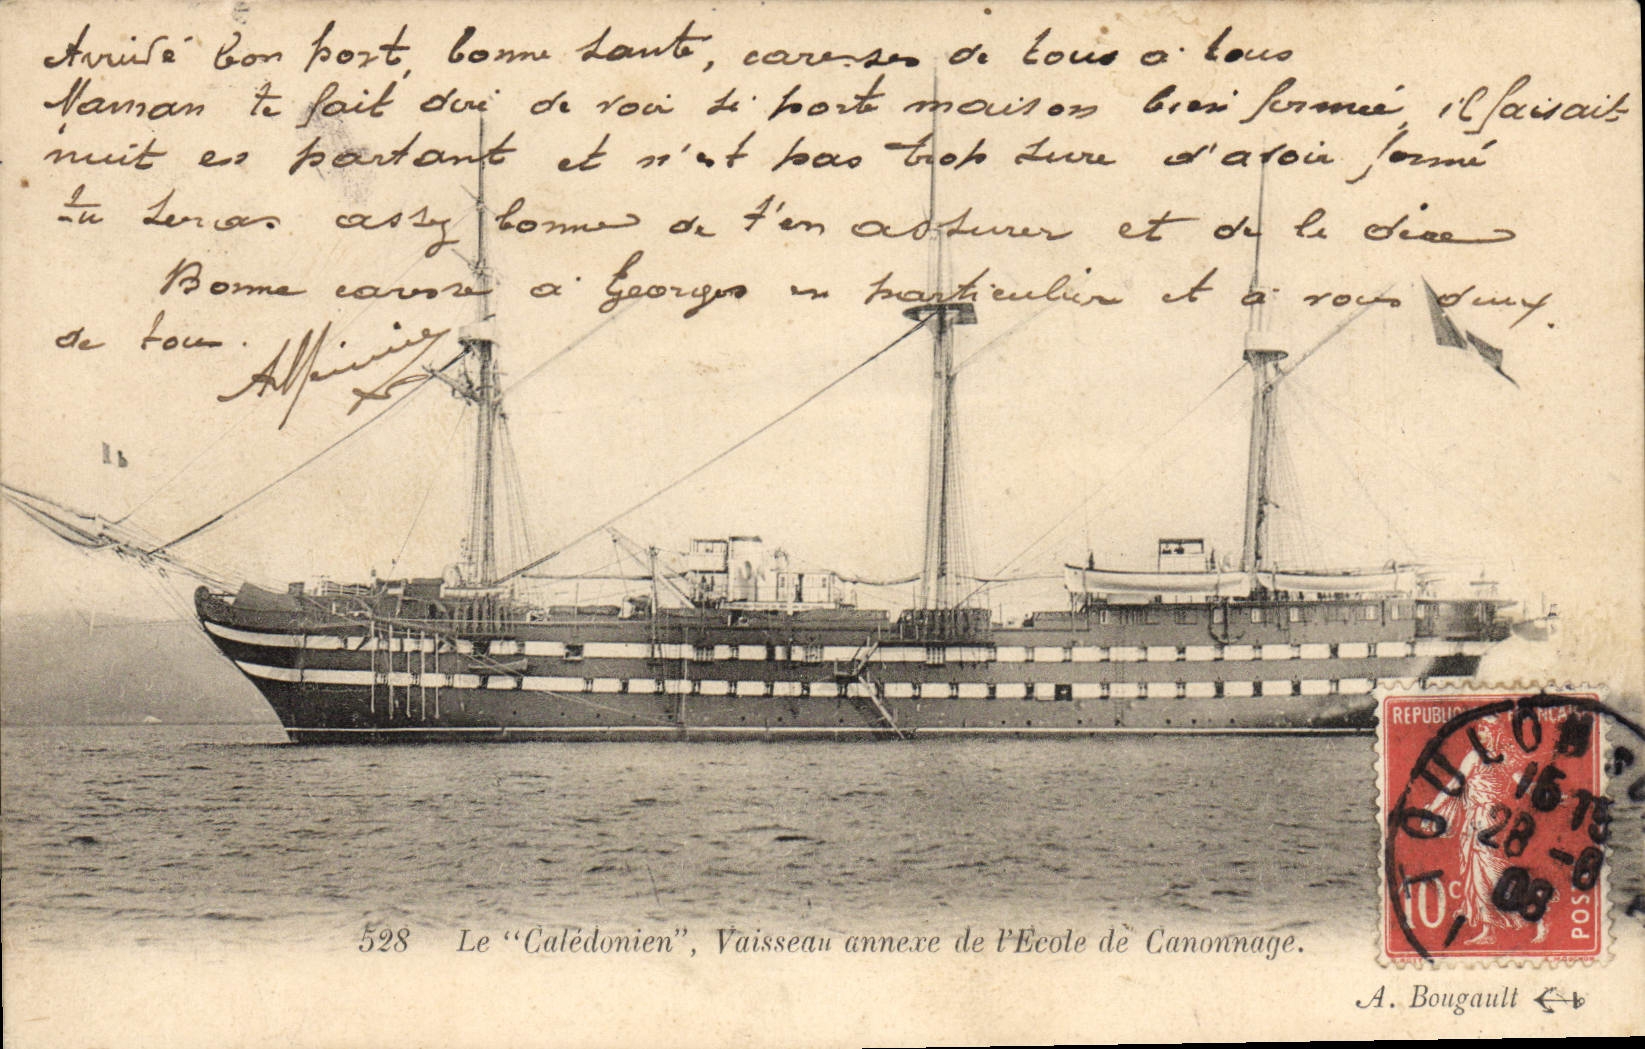 Arrivé bon port, bonne santé, caresses de tous à tous
Maman te fait dire de voir si porte maison bien fermée, il faisait
nuit en partant et n'est pas trop sure d'avoir fermé
tu seras assez bonne de t'en assurer et de le dire
Bonne caresse à Georges en particulier et à vous deux
de tous.
REPUBLIQUE FRANÇAISE
10c
POSTES
TOULON
15
28 -8
08
528 Le "Calédonien", Vaisseau annexe de l'Ecole de Canonnage.
A. Bougault